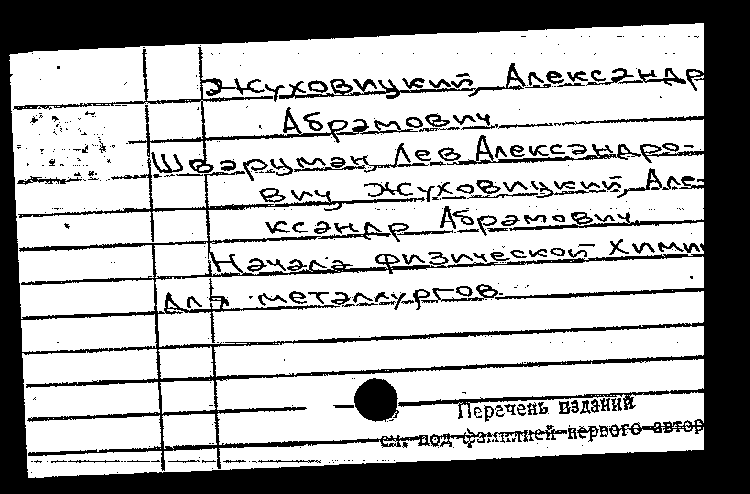 Жуховицкий, Александр
Абрамович
Шварцман, Лев Александро-
вич, Жуховицкий, Але-
ксандр Абрамович.
Начала физической хими
для металлургов.
Перечень изданий
см. под фамилией первого автор